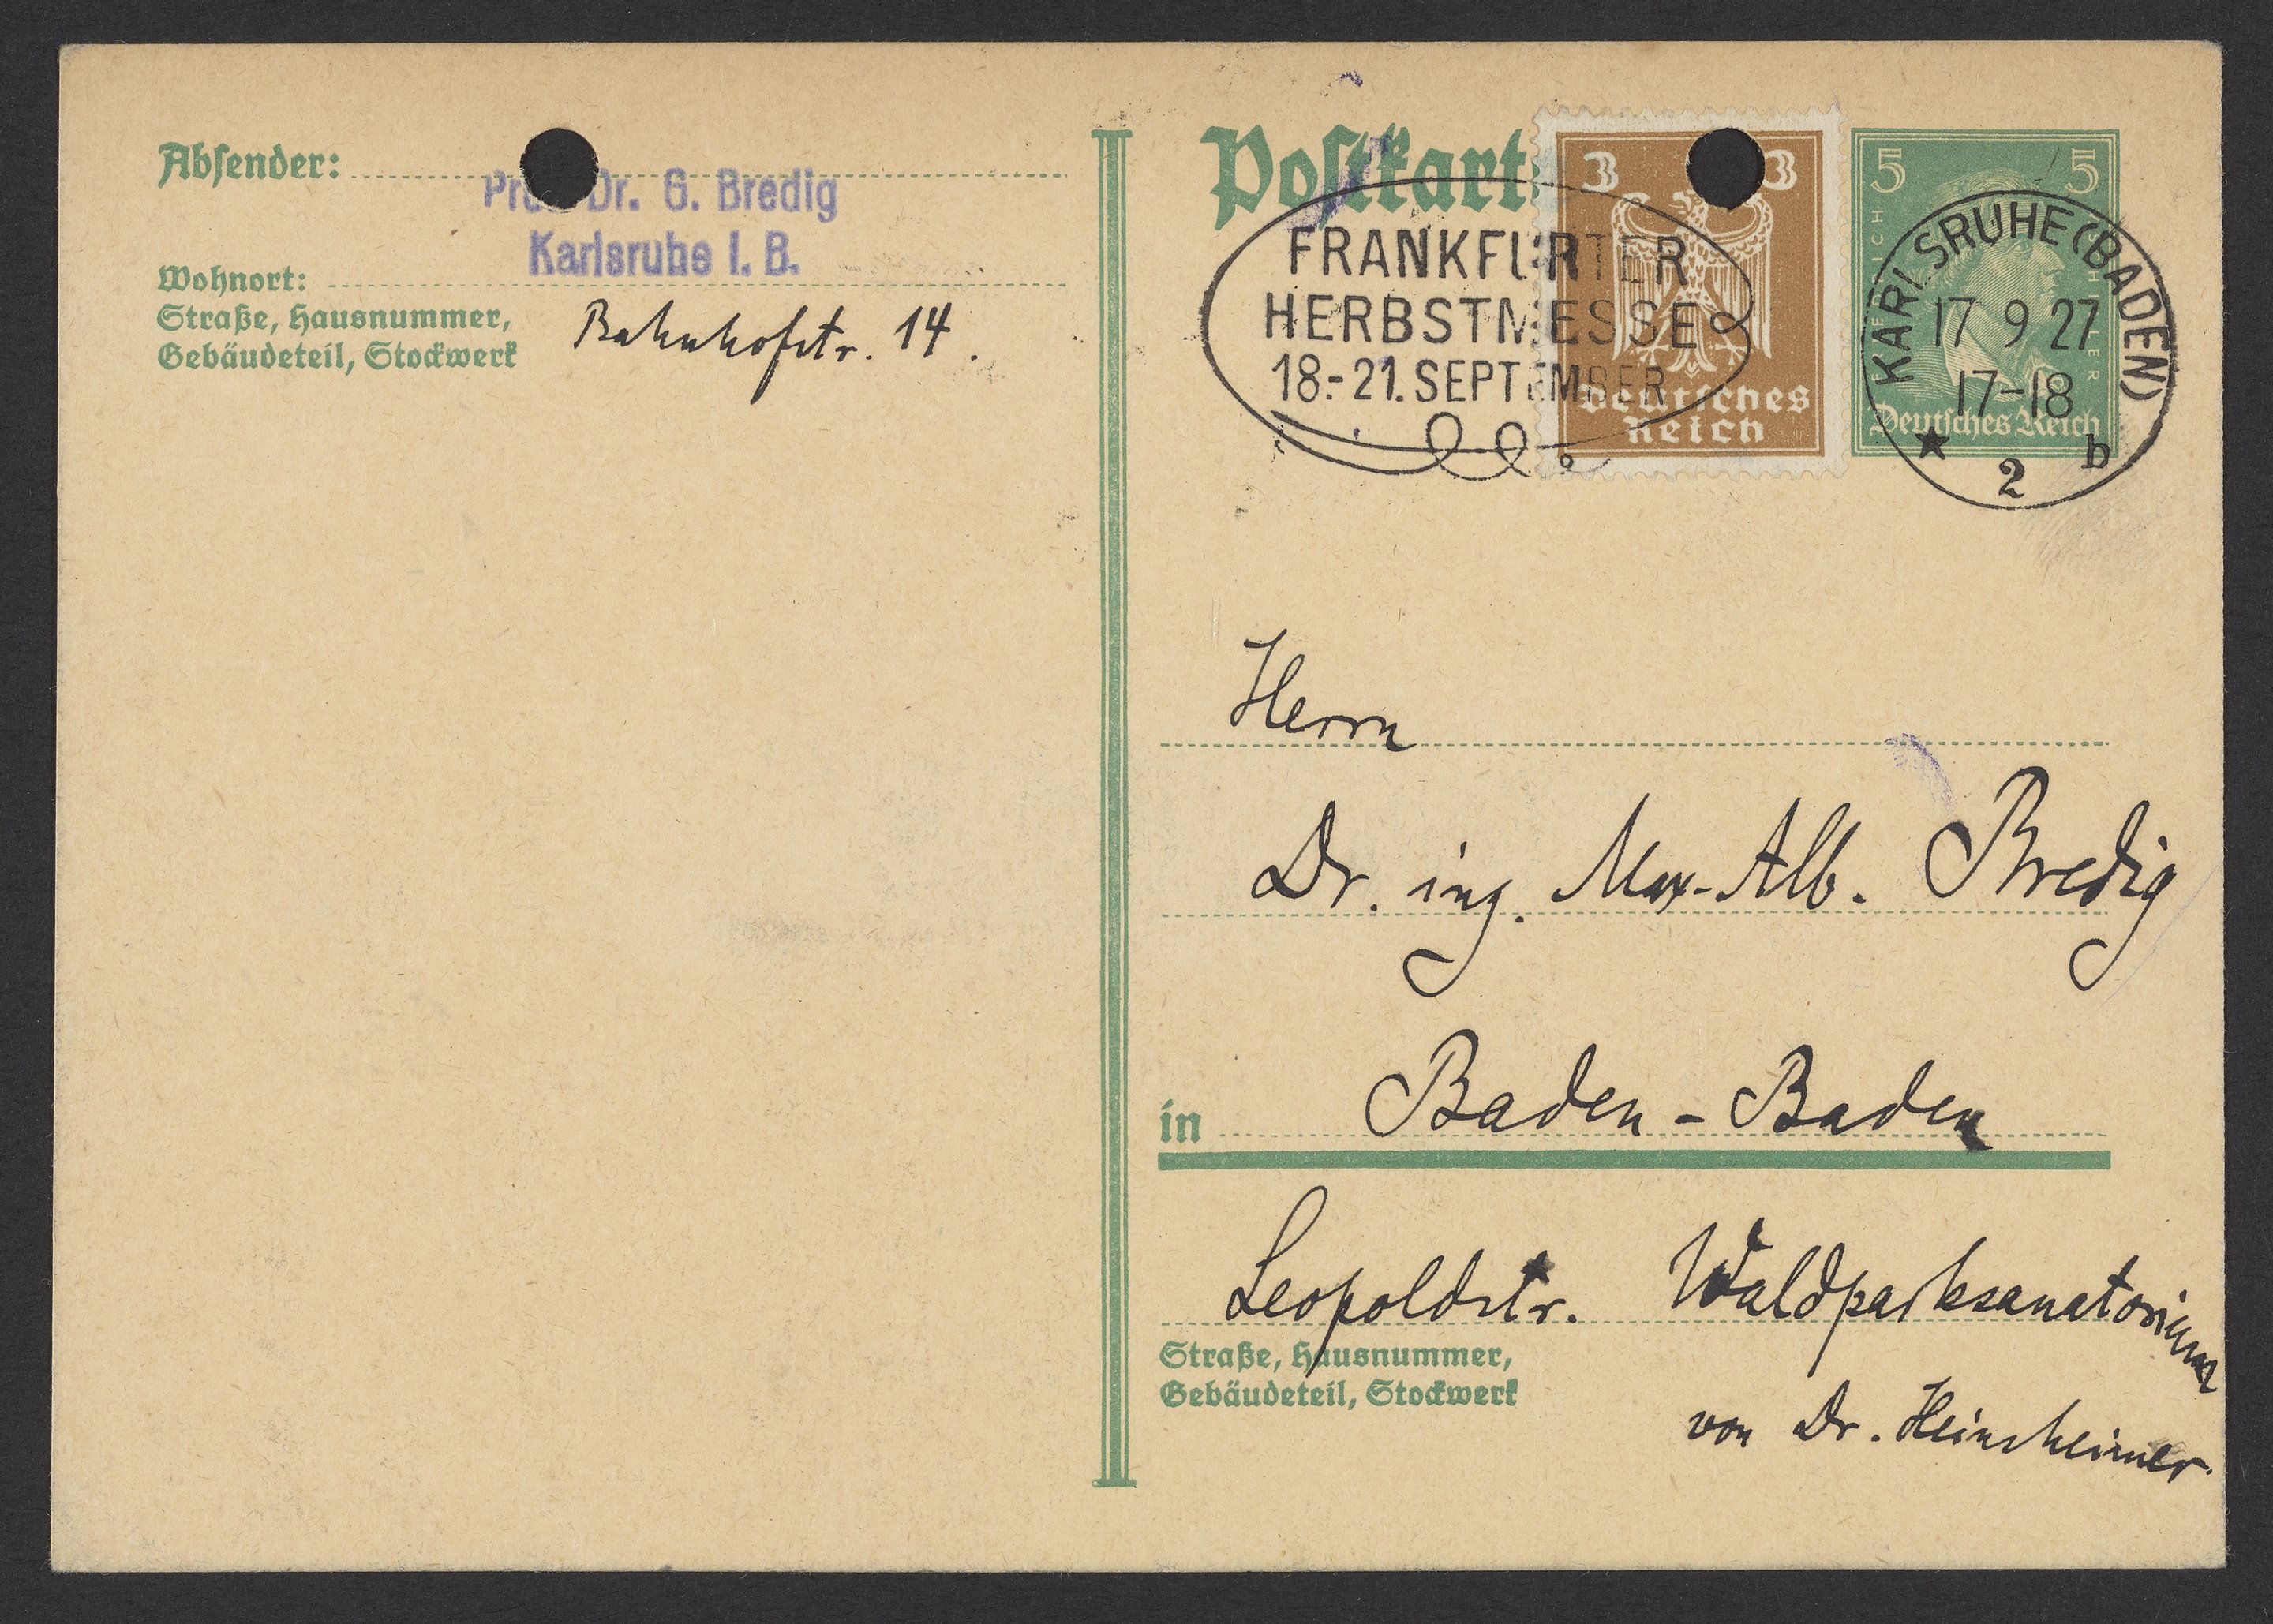 Absender:
Prof. Dr. G. Bredig
Karlsruhe I. B.
Wohnort:
Straße, Hausnummer,
Gebäudeteil, Stockwerk
Bahnhofstr. 14.
Postkart
3 3
Deutsches
Reich
5 5
Deutsches Reich
FRANKFURTER
HERBSTMESSE
18.-21. SEPTEMBER
KARLSRUHE (BADEN)
17 9 27
17-18
★ 2 b
Herrn
Dr. ing. Max-Alb. Bredig
in Baden-Baden
Leopoldstr. Waldparksanatorium
Straße, Hausnummer,
Gebäudeteil, Stockwerk
von Dr. Heinsheimer